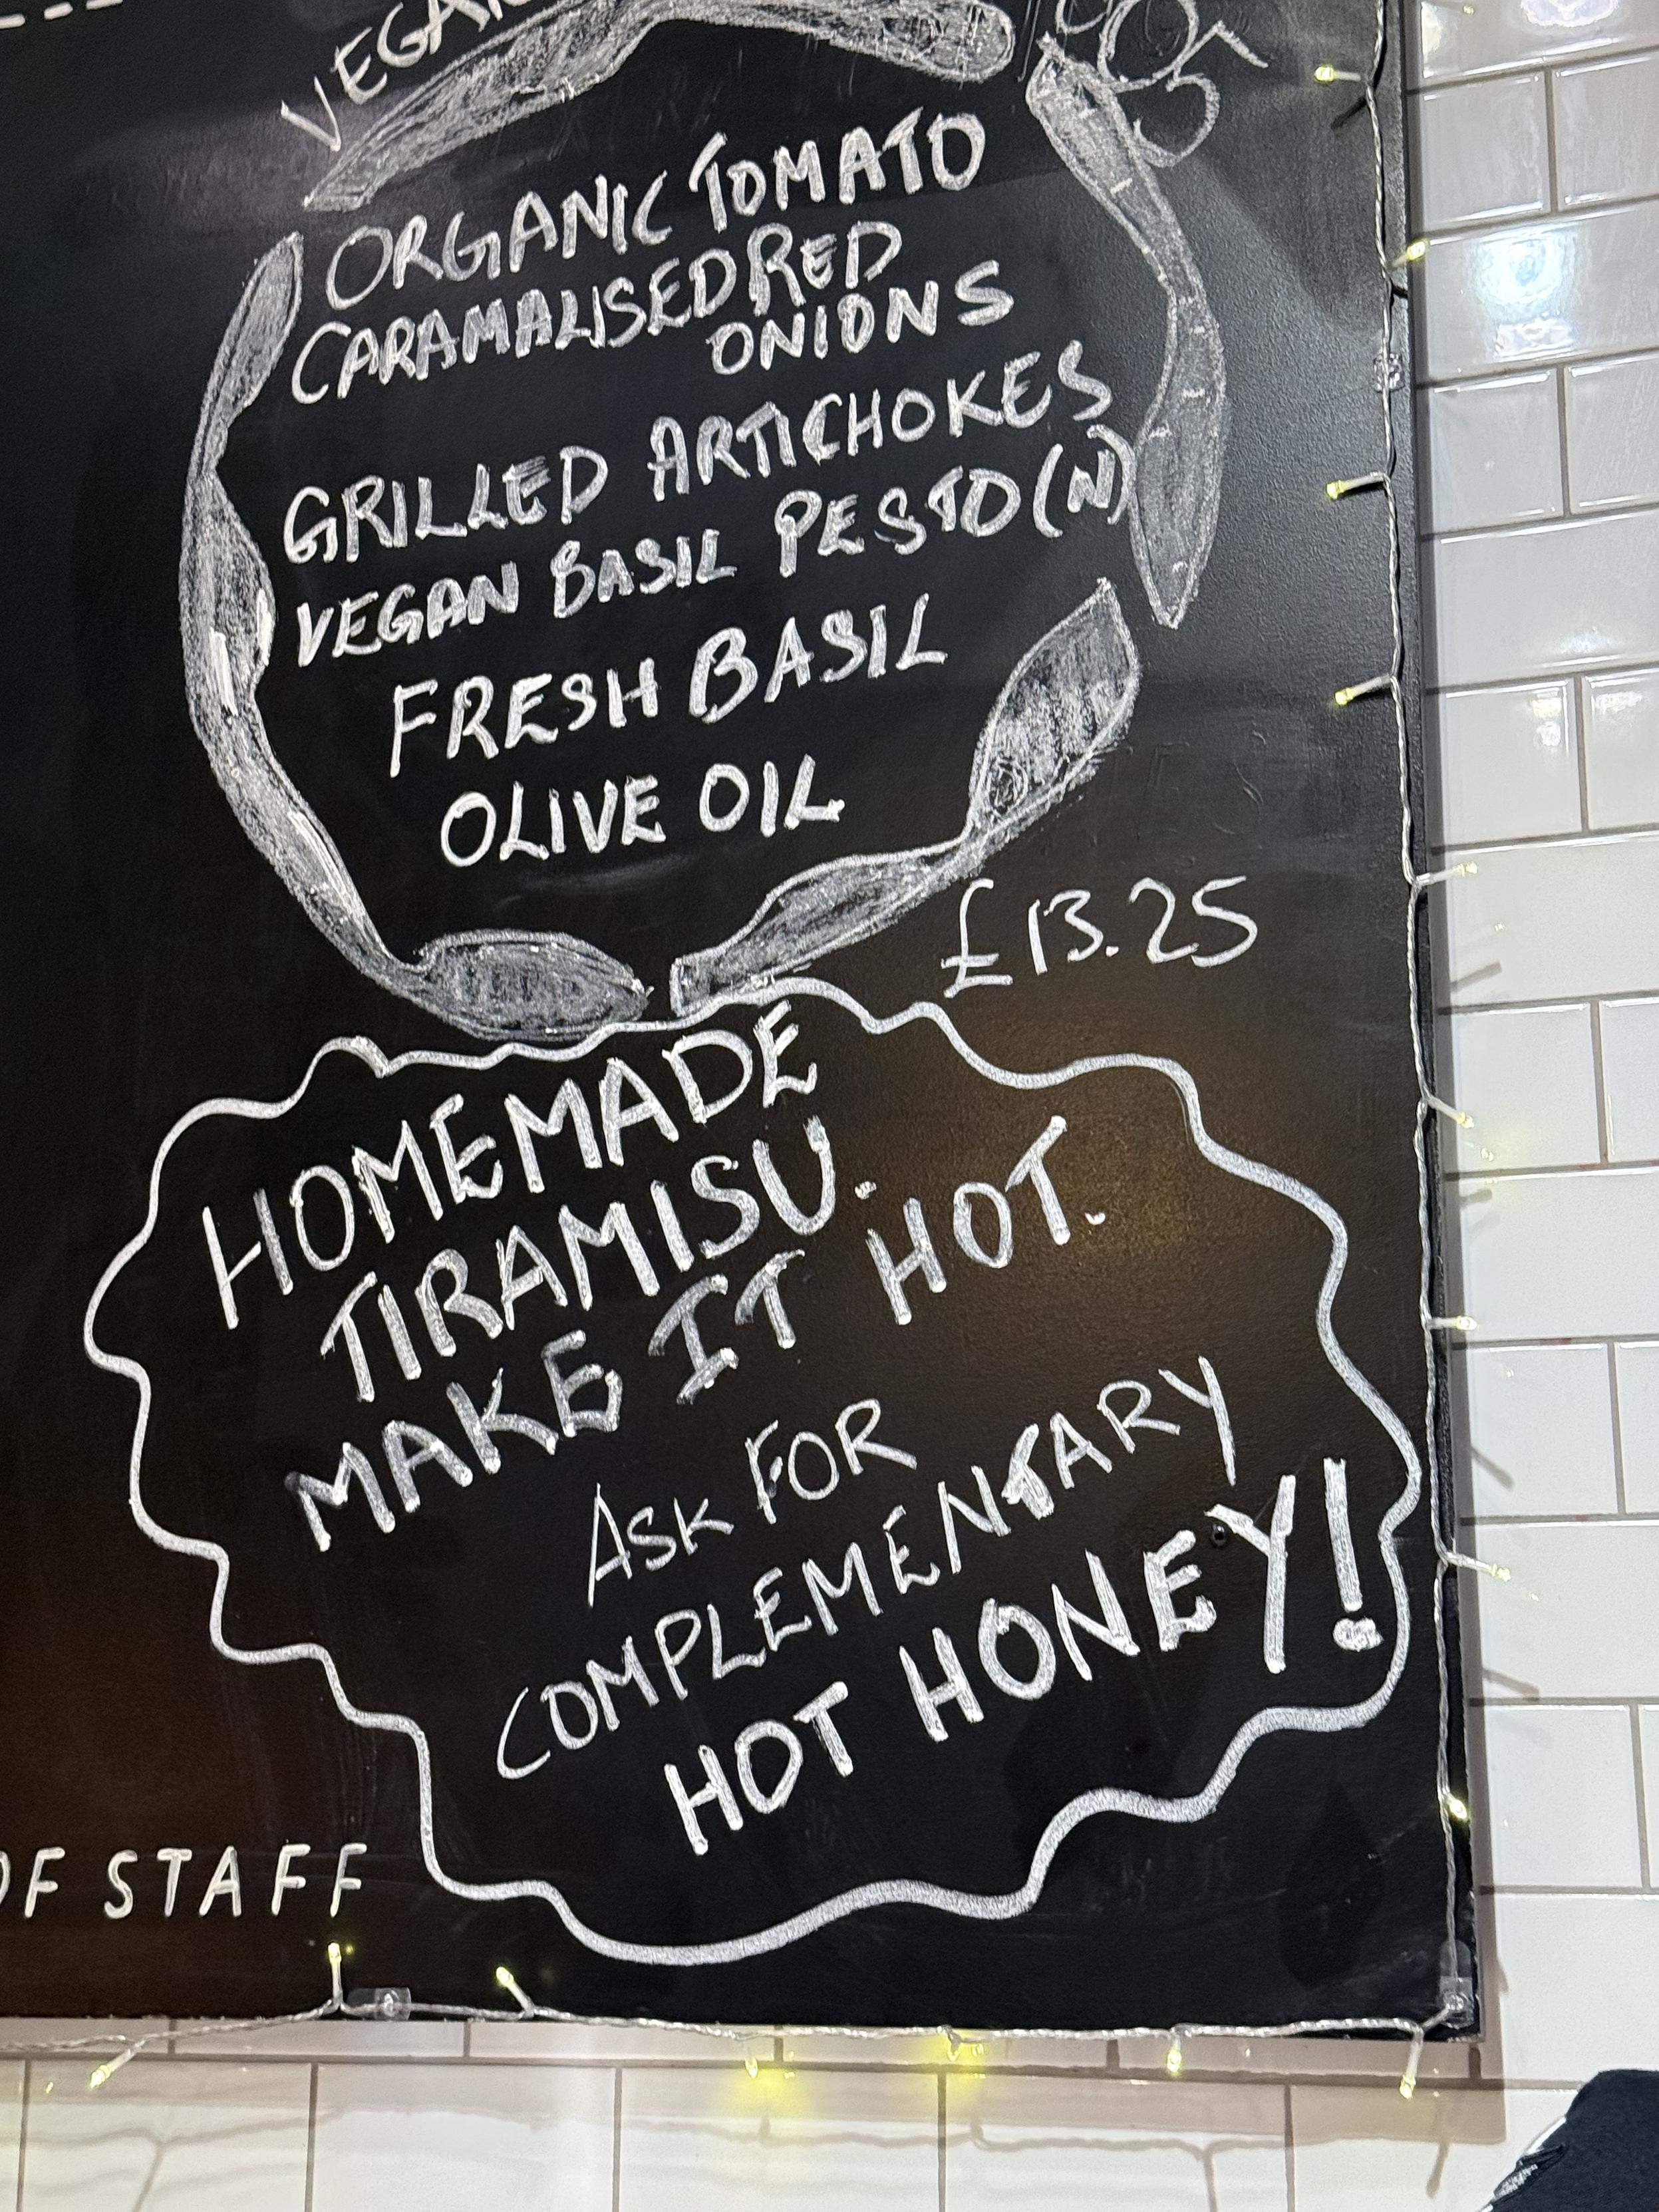 VEGAN
ORGANIC TOMATO
CARAMALISED RED
ONIONS
GRILLED ARTICHOKES
VEGAN BASIL PESTO (N)
FRESH BASIL
OLIVE OIL
£13.25
HOMEMADE
TIRAMISU.
MAKE IT HOT.
ASK FOR
COMPLEMENTARY
HOT HONEY!
OF STAFF